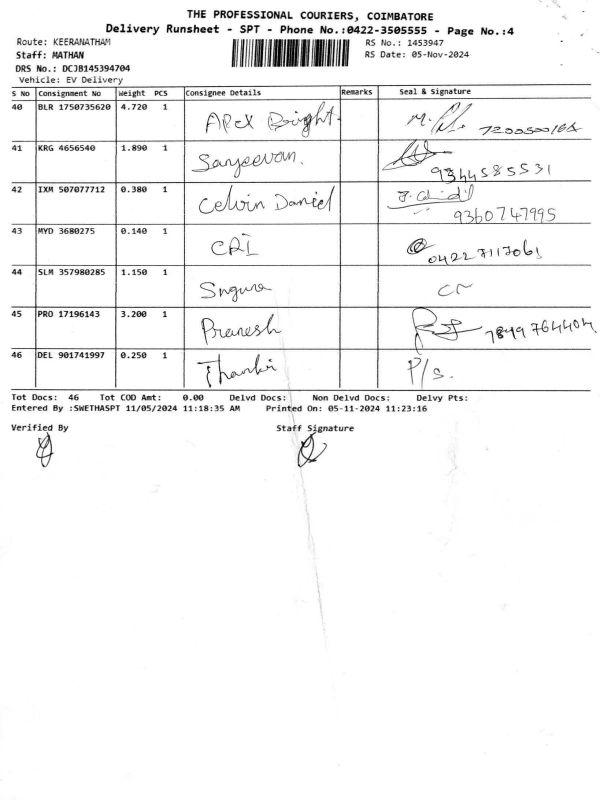 THE PROFESSIONAL COURIERS, COIMBATORE
Delivery Runsheet - SPT - Phone No.:0422-3505555 - Page No.:4
Route: KEERANATHAM RS No.: 1453947
Staff: MATHAN RS Date: 05-Nov-2024
DRS No.: DCJB145394704
Vehicle: EV Delivery
S No Consignment No Weight PCS Consignee Details Remarks Seal & Signature
40 BLR 1750735620 4.720 1 APEX Bright
41 KRG 4656540 1.890 1 Sanjeevan. 9344585531
42 IXM 507077712 0.380 1 Celvin Daniel 9360747995
43 MYD 3680275 0.140 1 CRI 04227117061
44 SLM 357980285 1.150 1
45 PRO 17196143 3.200 1 Pranesh 7849764404
46 DEL 901741997 0.250 1 P/s.
Tot Docs: 46 Tot COD Amt: 0.00 Delvd Docs: Non Delvd Docs: Delvy Pts:
Entered By :SWETHASPT 11/05/2024 11:18:35 AM Printed On: 05-11-2024 11:23:16
Verified By Staff Signature